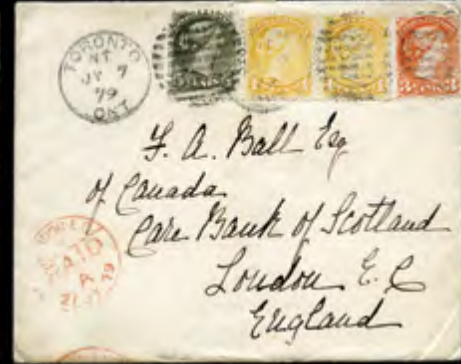 TORONTO
NT
JY 7
79
ONT
F. A. Ball Esq
of Canada
Care Bank of Scotland
London E. C
England
PAID
A
79